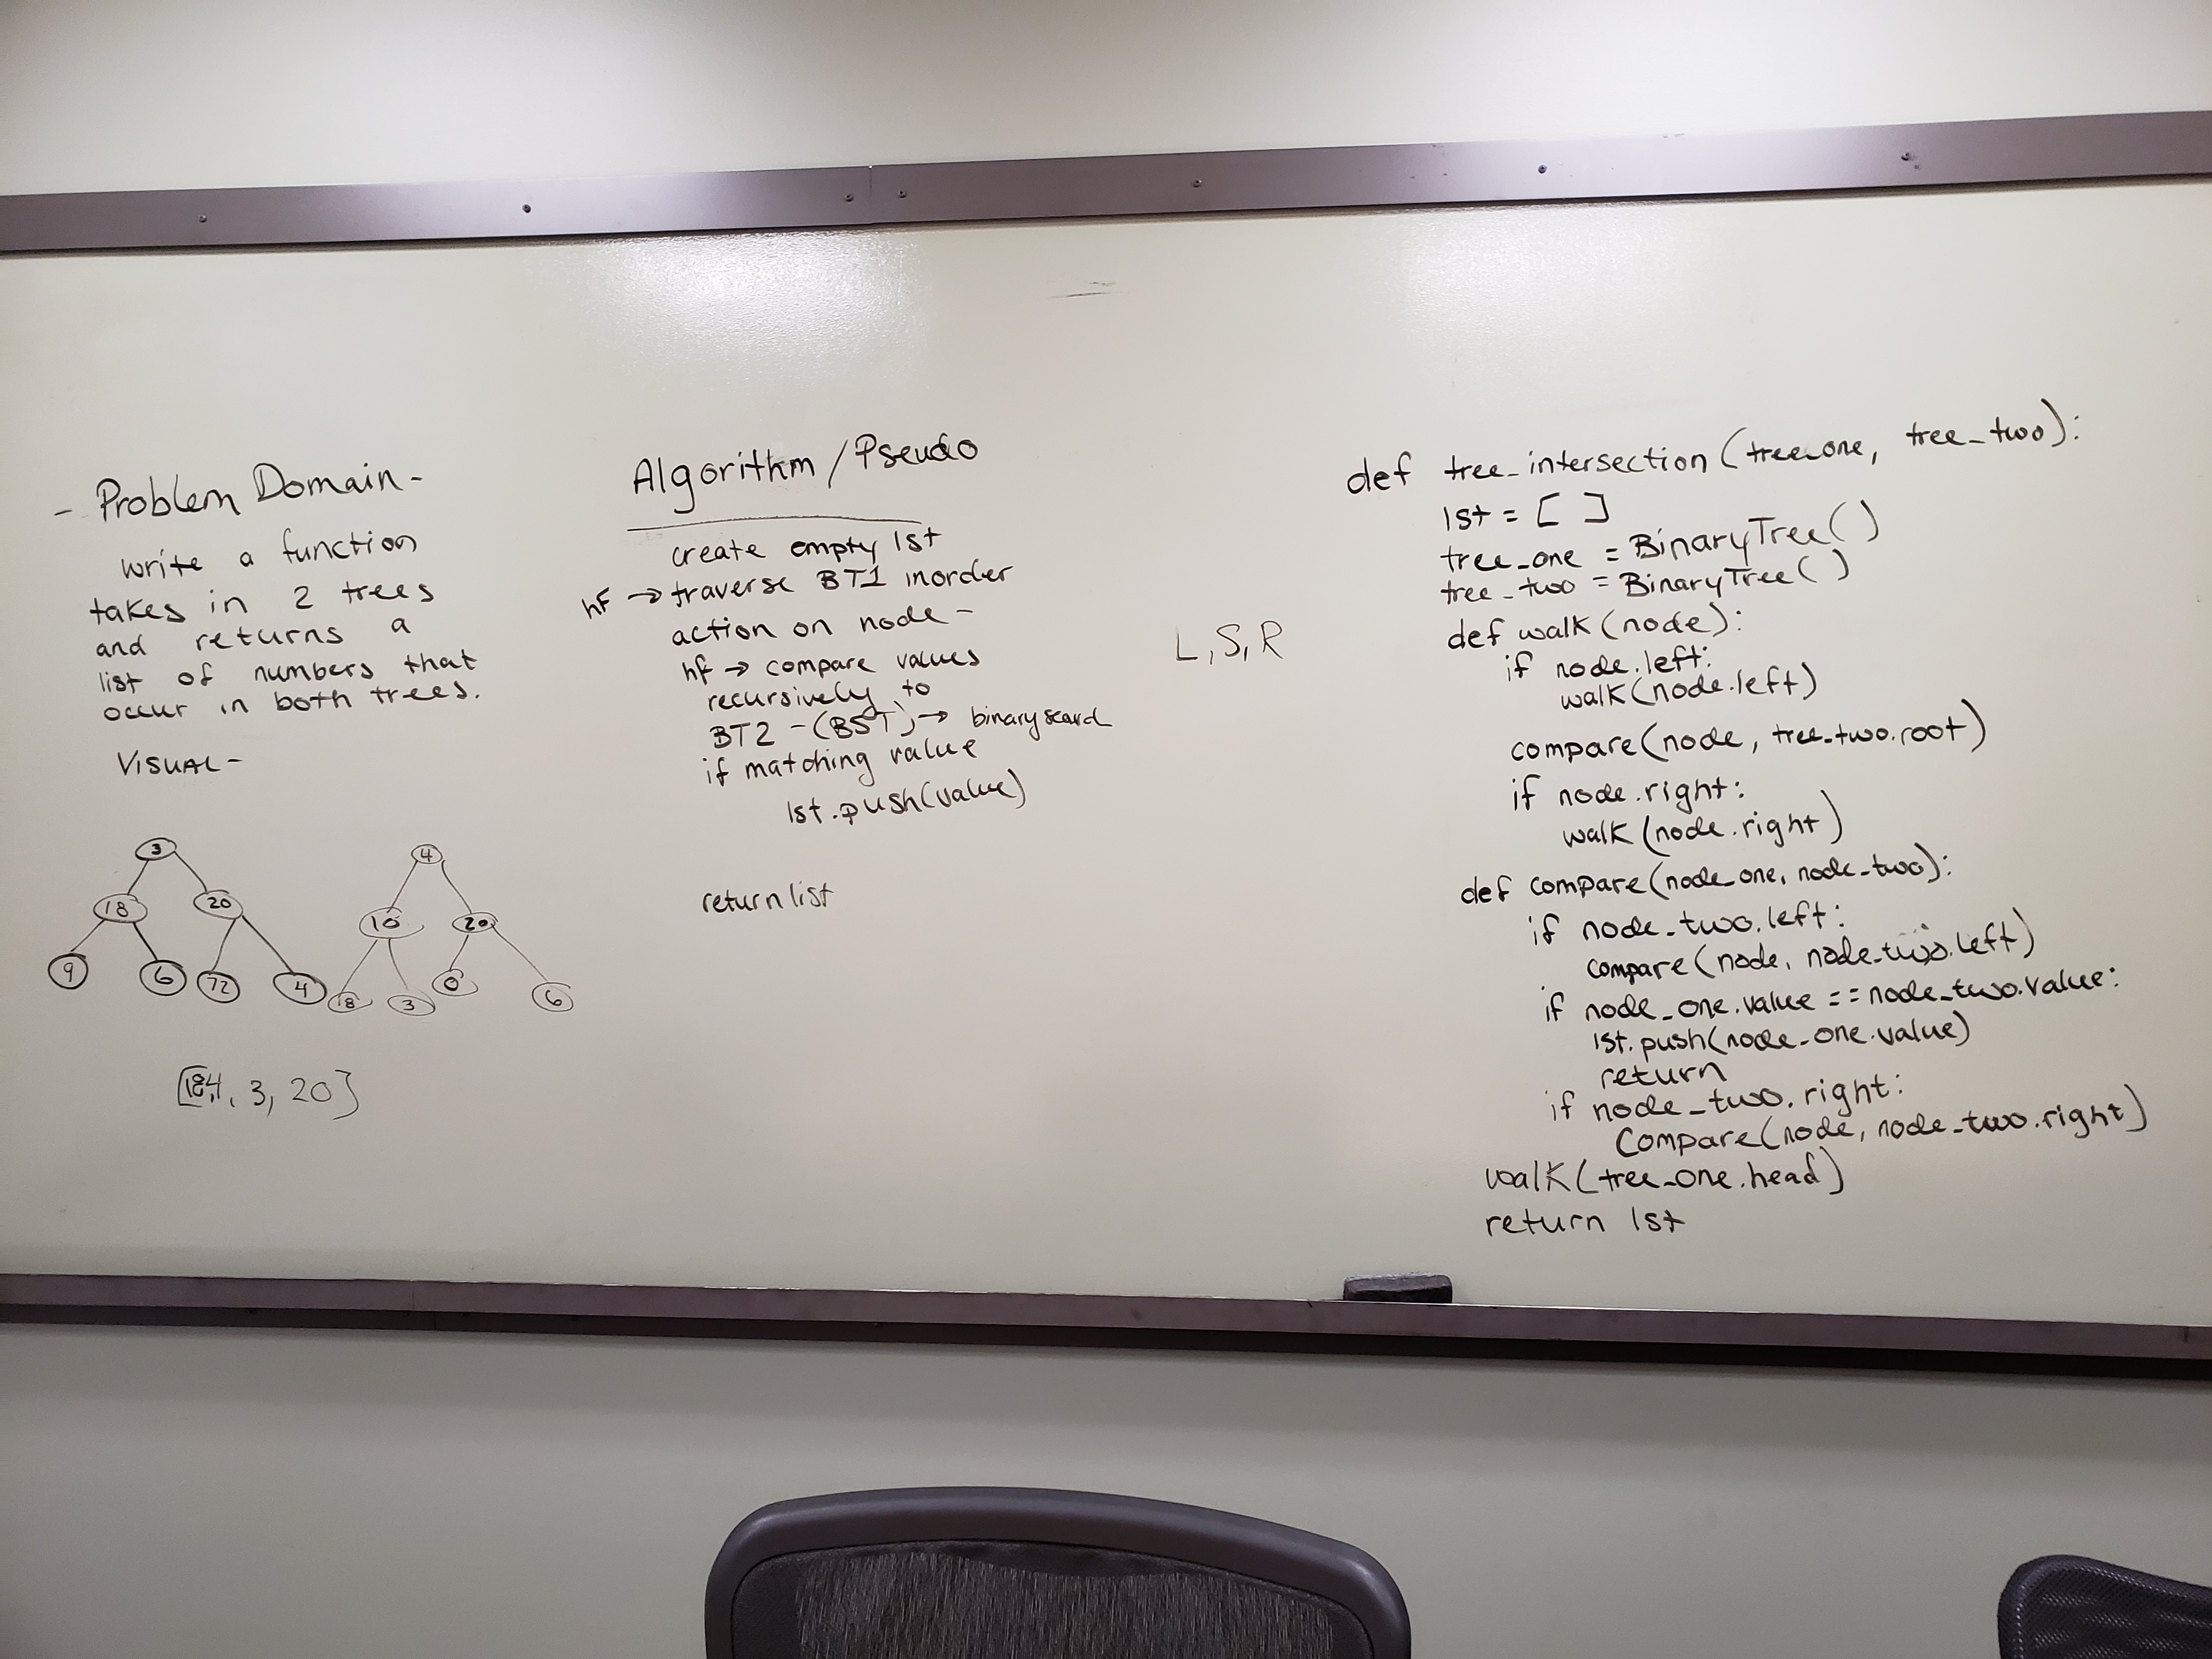 - Problem Domain -
write a function
takes in 2 trees
and returns a
list of numbers that
occur in both trees.
VISUAL -
3
18 20
9 6 72 4
4
10 20
8 3 0 6
, 3, 20]
Algorithm/Pseudo
create empty lst
hf → traverse BT1 inorder
action on node -
hf → compare values
recursively to
BT2 - (BST) → binary
if matching value
lst.push(value)
return list
L, S, R
def tree_intersection(tree_one, tree_two):
lst = [ ]
tree_one = BinaryTree()
tree_two = BinaryTree()
def walk(node):
if node.left:
walk(node.left)
compare(node, tree_two.root)
if node.right:
walk(node.right)
def compare(node_one, node_two):
if node_two.left:
compare(node, node_two.left)
if node_one.value == node_two.value:
lst.push(node_one.value)
return
if node_two.right:
Compare(node, node_two.right)
walk(tree_one.head)
return lst